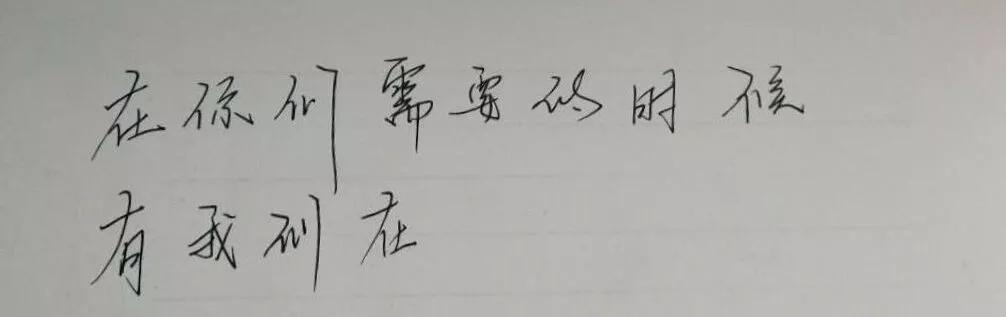 在你们需要的时候
有我们在